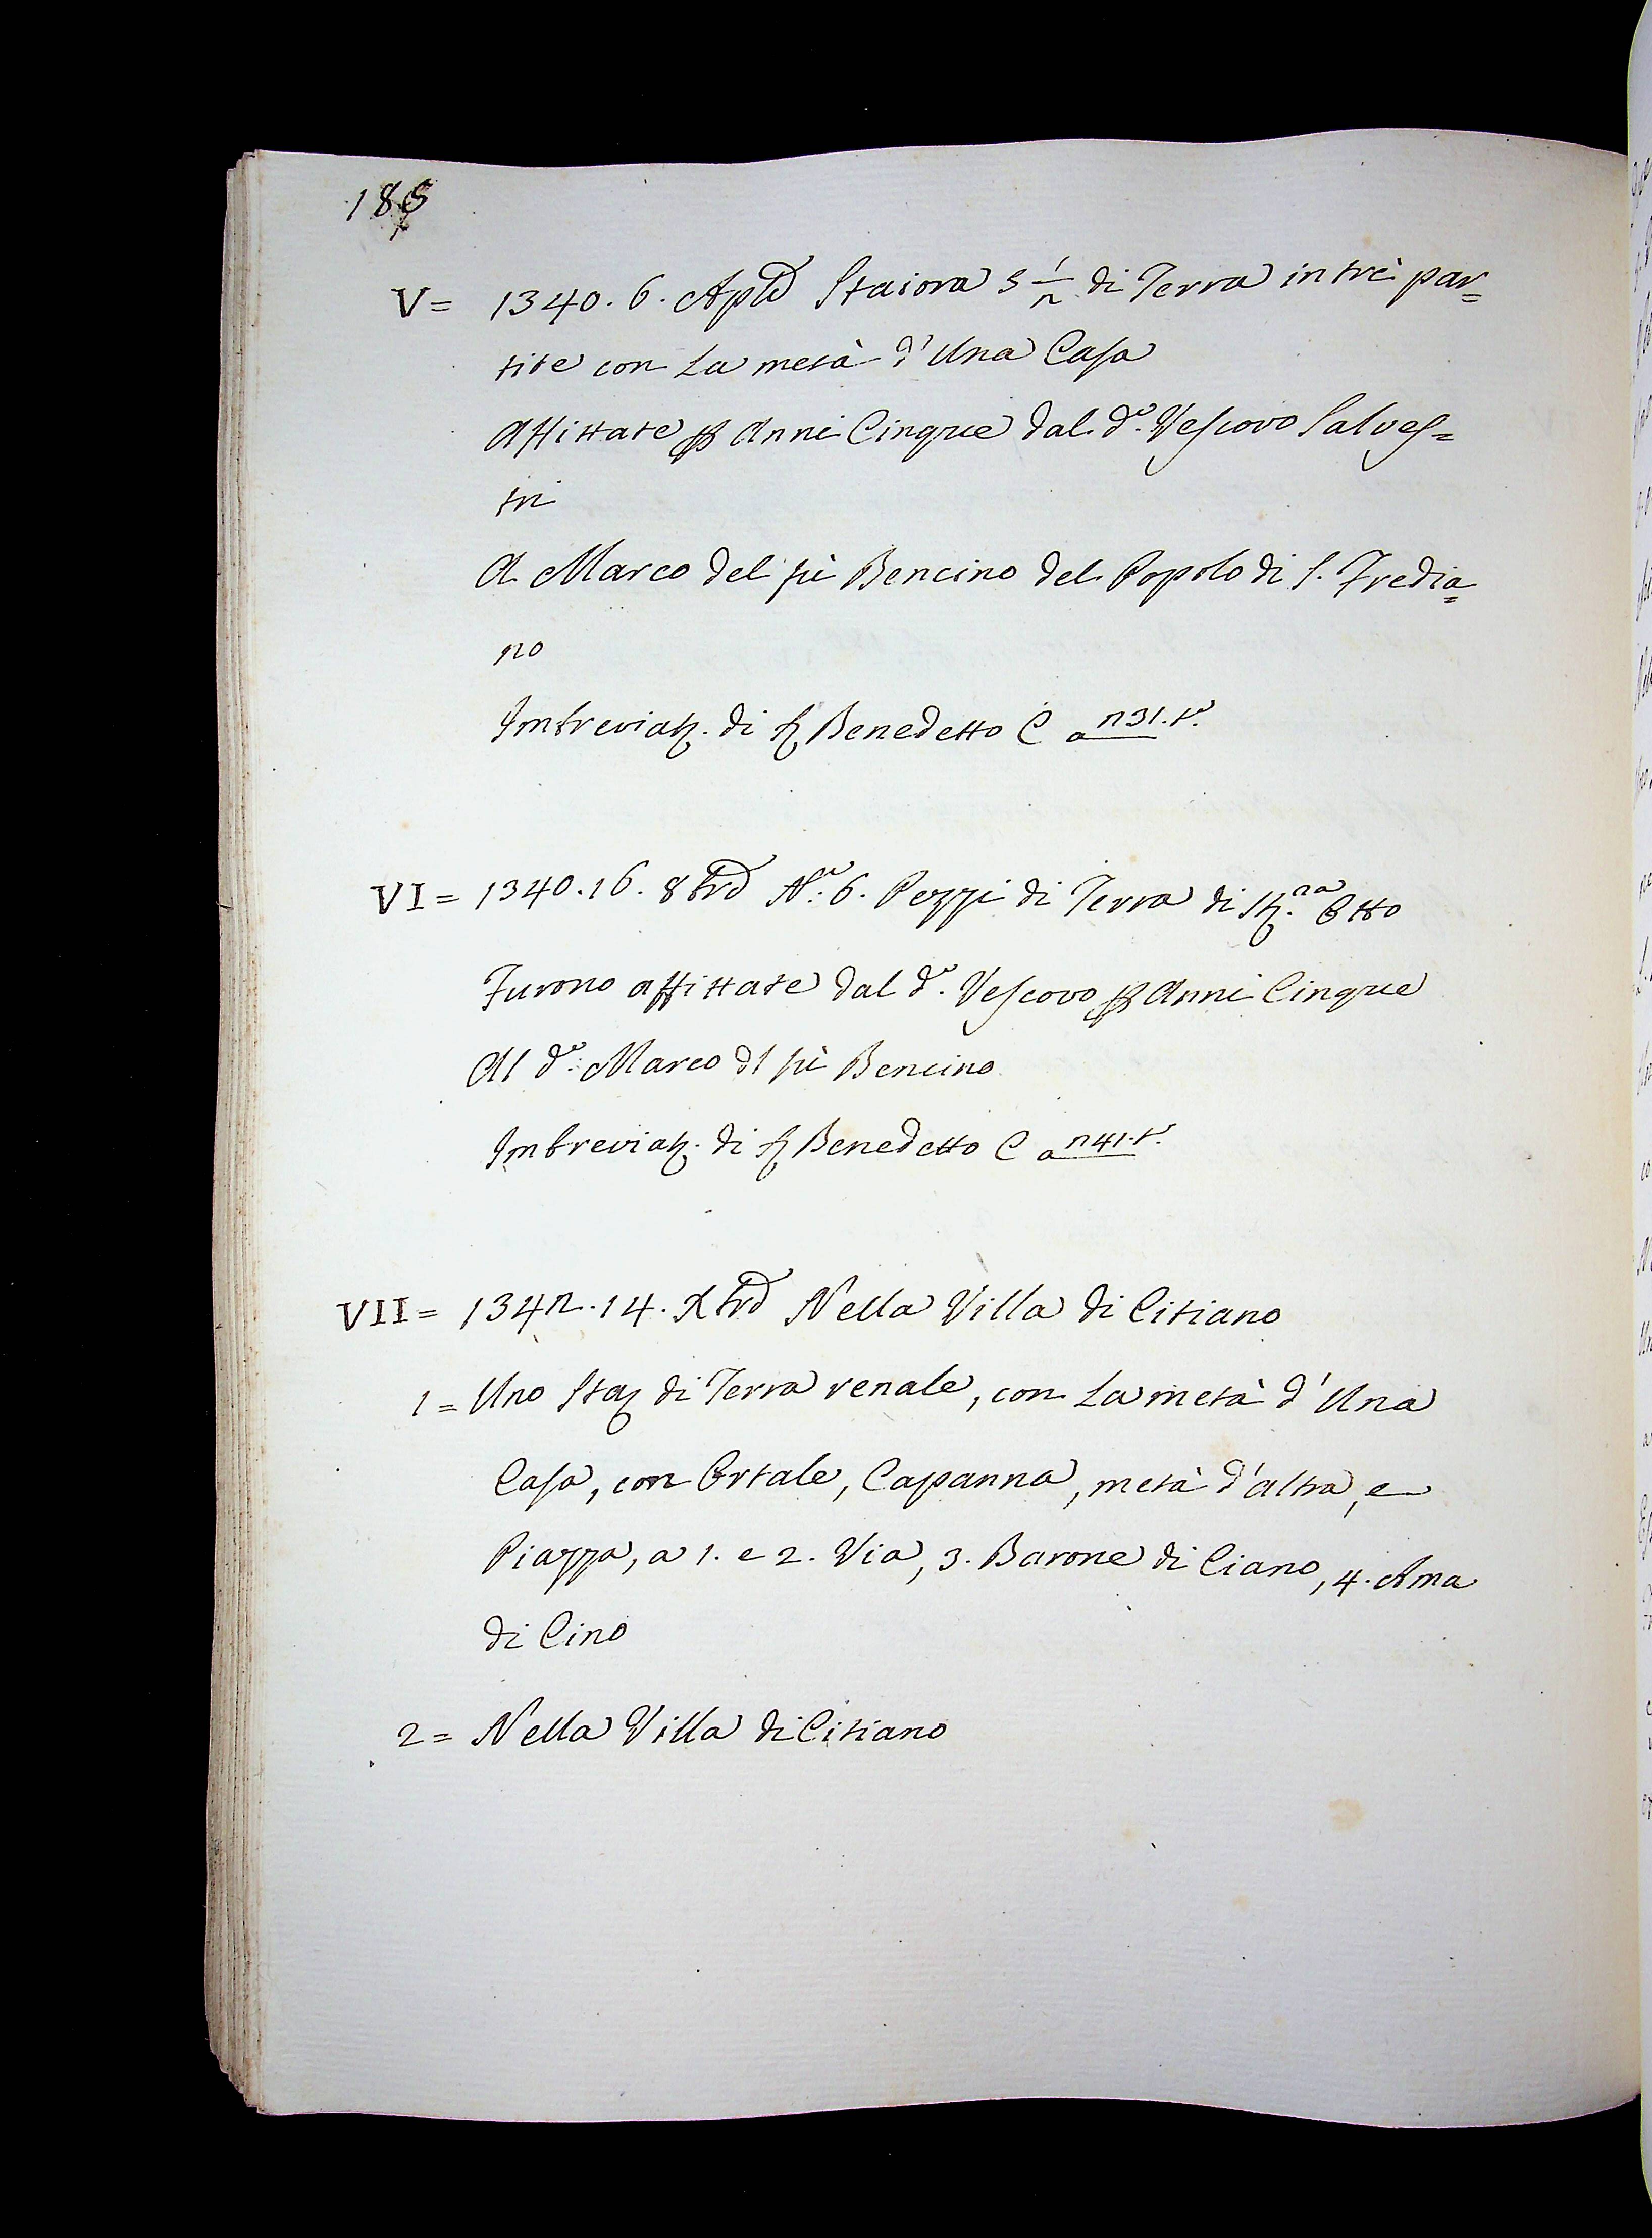 186
V = 1340. 6. Aple Staiora 5 1/2 di Terra in trè par=
tite con La metà d'Una Casa
Affittate p Anni Cinque dal d.º Vescovo Salves=
tri
A Marco del fù Bencino del Popolo di S. Fredia=
no
Imbreviaz. di S Benedetto C a 231. t.º
VI = 1340. 16. 8bre N.º 6. Pezzi di Terra di St.ra Otto
Furono affittate dal d.º Vescovo p Anni Cinque
Al d.º Marco dl fù Bencino
Imbreviaz. di S Benedetto C a 241. t.º
VII = 1342. 14. Xbre Nella Villa di Citiano
1 = Uno Staz di Terra renale, con La metà d'Una
Casa, con Ortale, Capanna, metà d'altra, e
Piazza, a 1. e 2. Via, 3. Barone di Ciano, 4. Ama
di Cino
2 = Nella Villa di Citiano